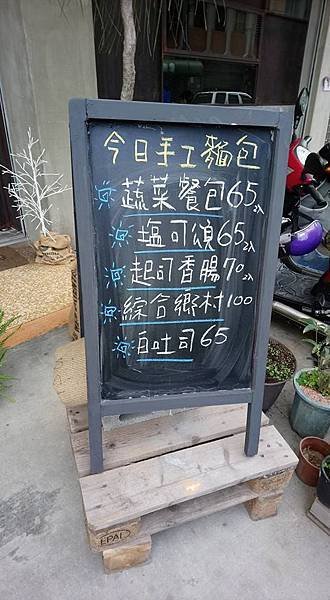 今日手工麵包
蔬菜餐包65 2入
塩可頌65 2入
起司香腸70 2入
綜合鄉村100
白吐司65
EPAL